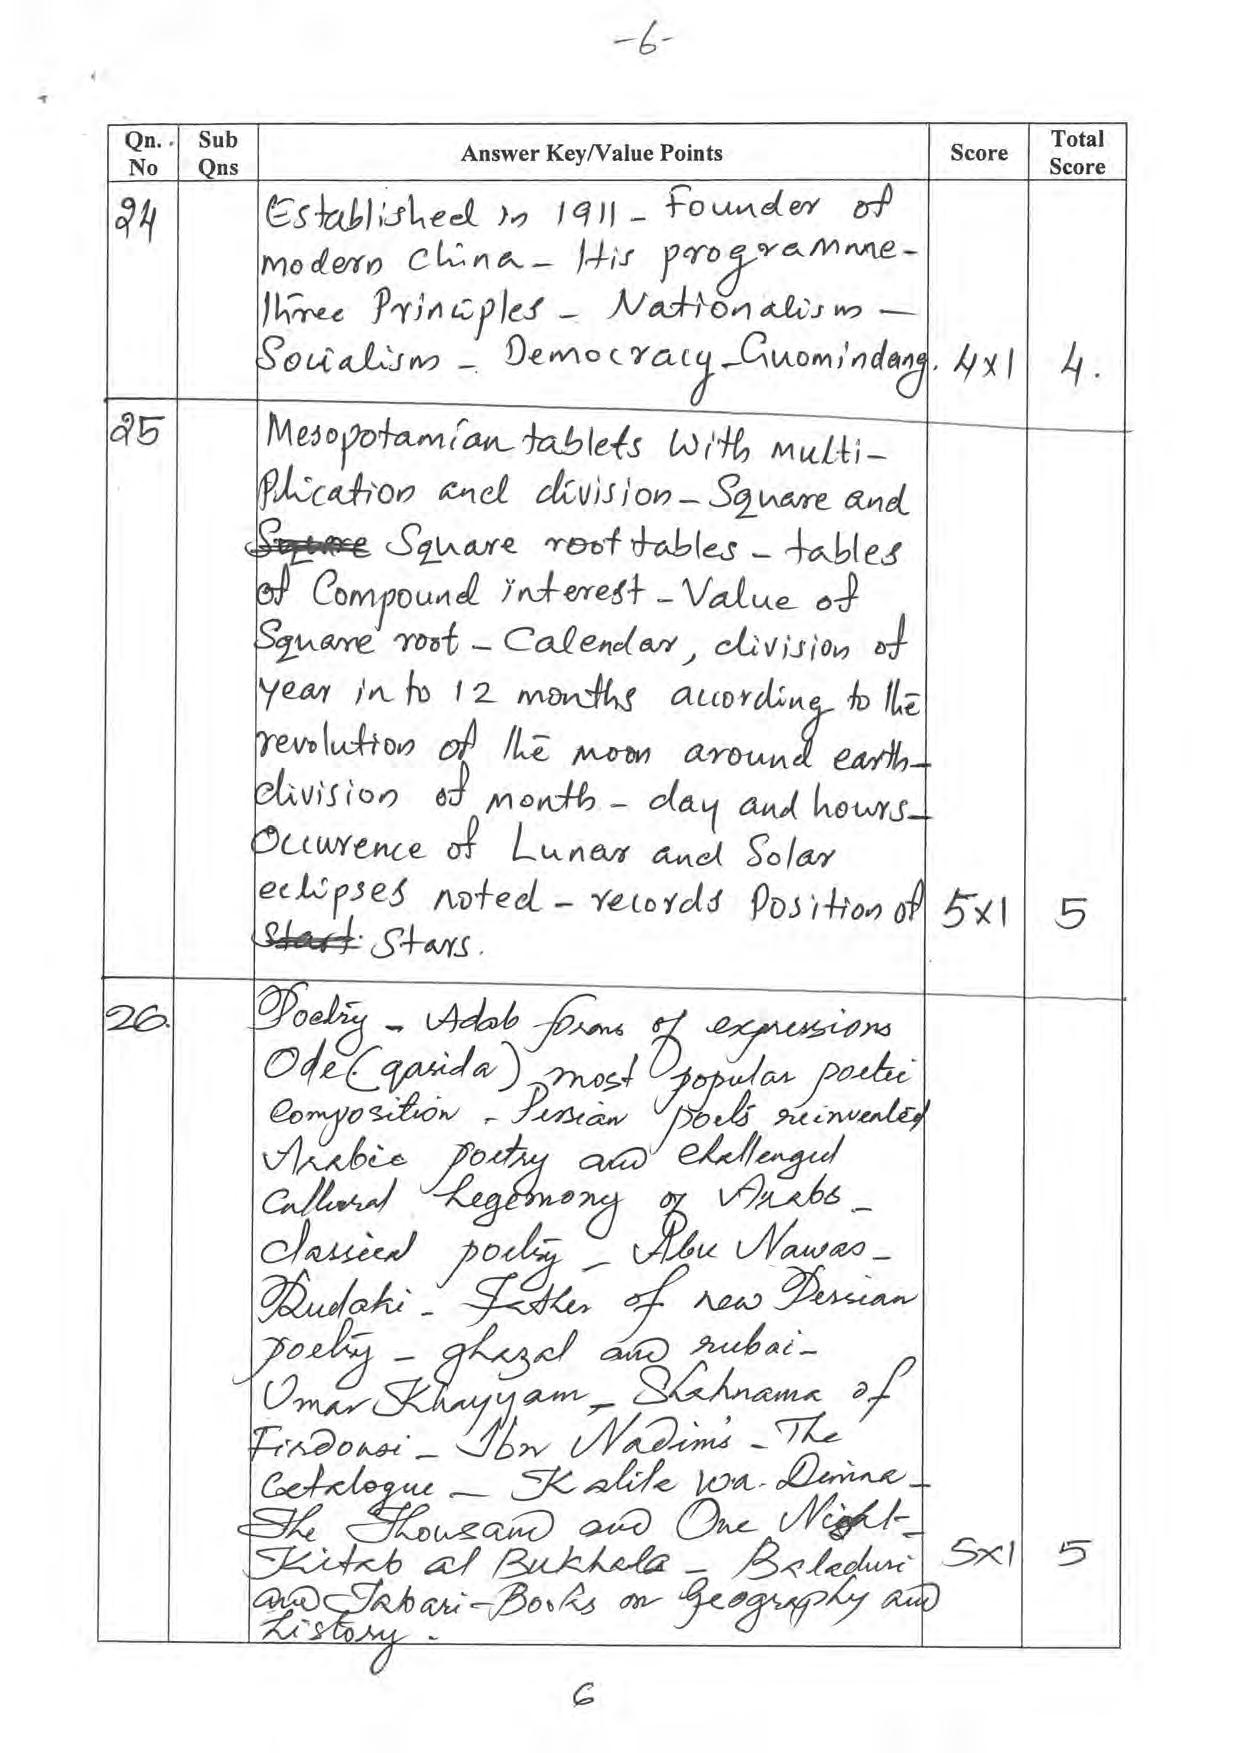 -6-
Qn. No
Sub Qns
Answer Key/Value Points
Score
Total Score
24
Established in 1911 - Founder of
modern China - His programme -
three Principles - Nationalism -
Socialism - Democracy - Guomindang. 4x1 4.
25
Mesopotamian tablets with multi-
plication and division - Square and
Square Square root tables - tables
of Compound interest - Value of
Square root - Calendar, division of
year in to 12 months according to the
revolution of the moon around earth -
division of month - day and hours -
Occurence of Lunar and Solar
eclipses noted - records Position of 5x1 5
Start Stars.
26.
Poetry - Adab forms of expressions
Ode (qasida) most popular poetic
Composition - Persian poets reinvented
Arabic poetry and challenged
Cultural hegemony of Arabs -
classical poetry - Abu Nawas -
Rudaki - Father of new Persian
poetry - ghazal and rubai -
Omar Khayyam - Shahnama of
Firdowsi - Ibn Nadim's - The
Catalogue - Kalila wa. Dimna -
The Thousand and One Night -
Kitab al Bukhala - Baladuri 5x1 5
and Tabari - Books on Geography and
history.
6